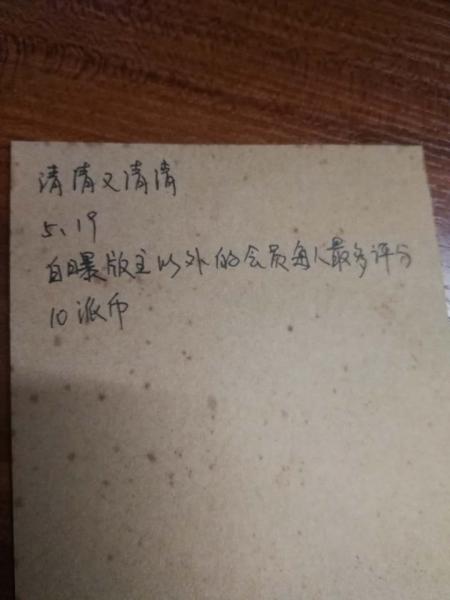 清清又清清
5.19
自曝版主以外的会员每人最多评分
10派币